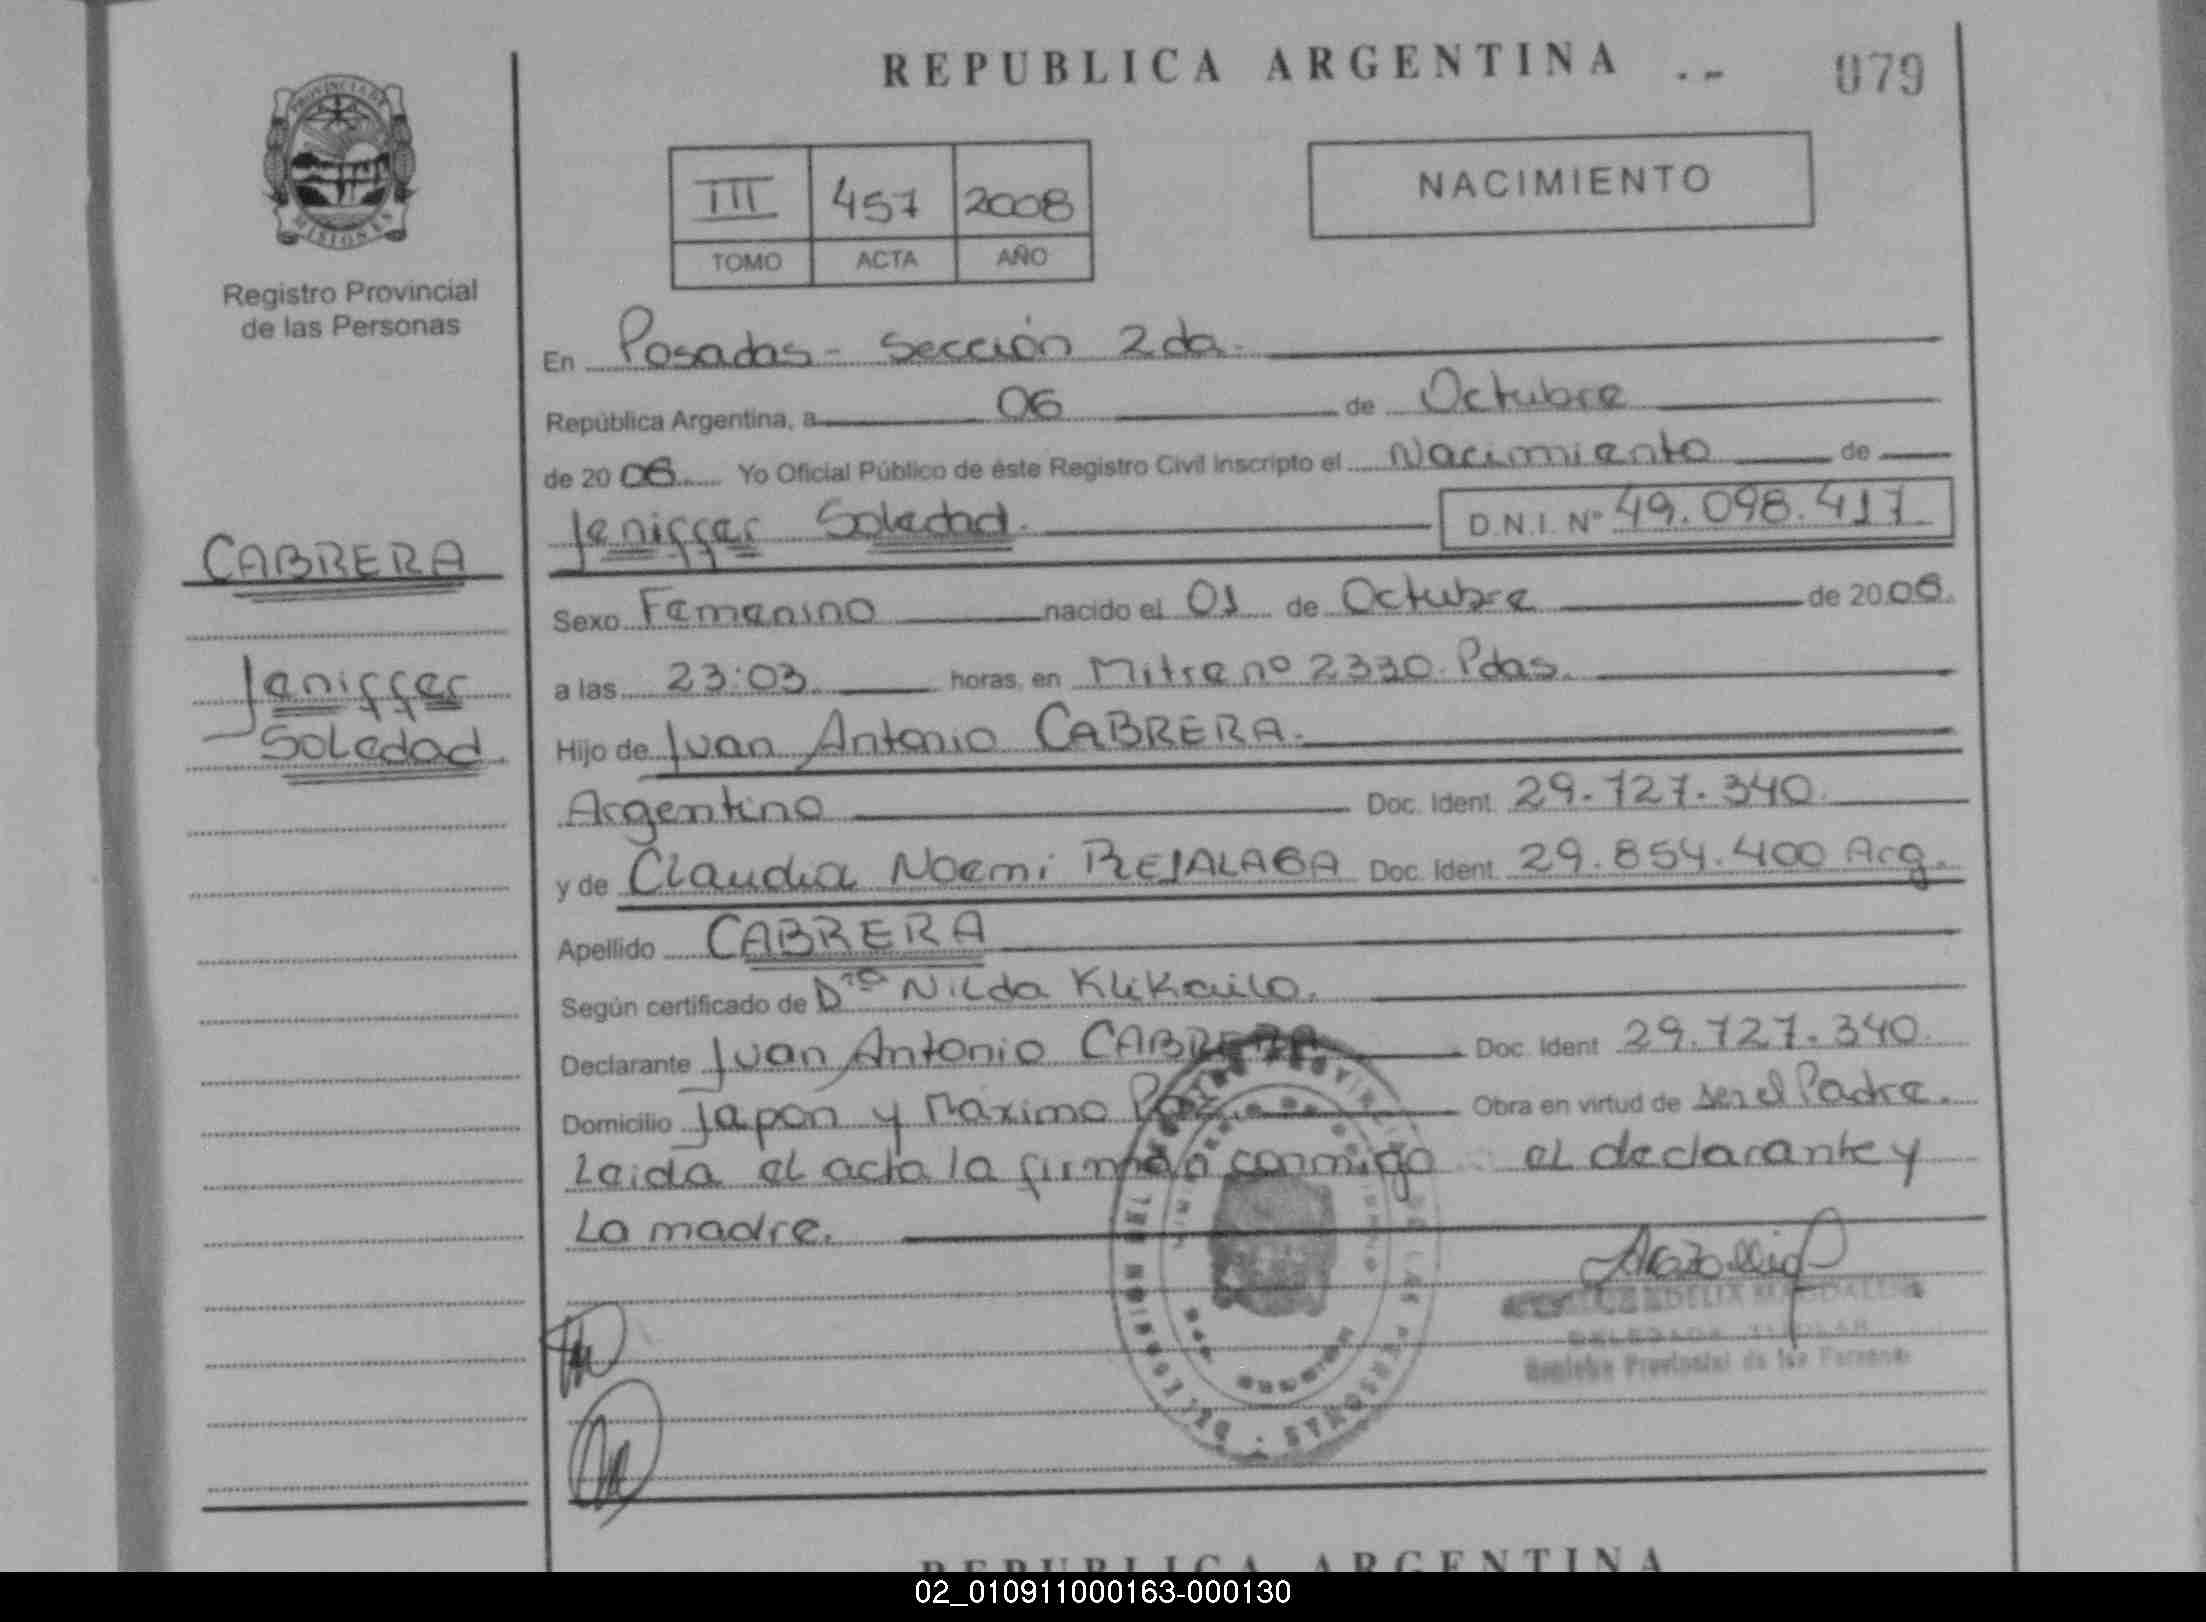 REPUBLICA ARGENTINA
079
PROVINCIA DE
MISIONES
Registro Provincial
de las Personas
III 457 2008
TOMO ACTA AÑO
NACIMIENTO
En Posadas - Sección 2da.
República Argentina, a 06 de Octubre
de 20 08 Yo Oficial Público de éste Registro Civil Inscripto el Nacimiento de
Jeniffer Soledad. D.N.I. Nº 49.098.417
CABRERA
Jeniffer
Soledad.
Sexo Femenino nacido el 01 de Octubre de 20 08.
a las 23:03 horas, en Mitre nº 2330. Pdas.
Hijo de Juan Antonio CABRERA.
Argentino Doc. Ident. 29.727.340.
y de Claudia Noemi Doc. Ident. 29.854.400 Arg.
Apellido CABRERA
Según certificado de Dra Nilda Klekailo.
Declarante Juan Antonio CABRERA Doc. Ident 29.727.340.
Domicilio Japon y Maximo Paz Obra en virtud de ser el Padre.
Leida el acta la firman conmigo el declarante y
La madre.
REGISTRO PROVINCIAL DE LAS PERSONAS
MISIONES
Registro Provincial de las Personas
REPUBLICA ARGENTINA
02_010911000163-000130